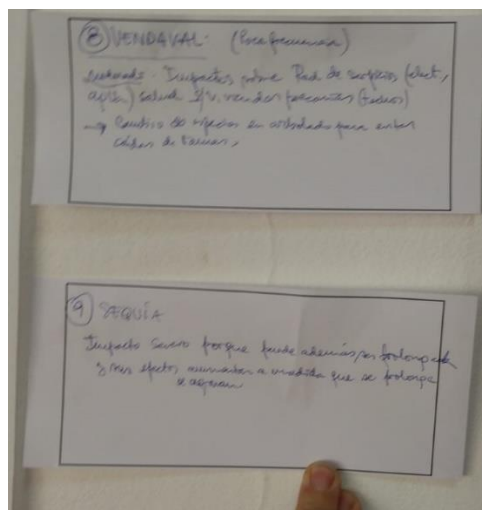 8 VENDAVAL. (Poca frecuencia)
Moderado - Impactos sobre Red de servicios (elect,
agua) salud y viviendas precarias (techos)
→ Cambio de especies en arbolado para evitar
caídas de ramas.
9 SEQUÍA
Impacto severo porque puede además ser prolongada
y sus efectos aumentan a medida que se prolonga
se agravan